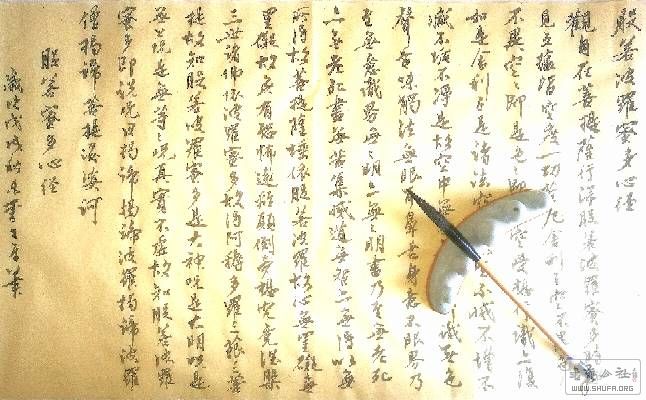 般若波羅蜜多心經
觀自在菩薩行深般若波羅蜜多時
見五蘊皆空度一切苦厄舍利子色不
不異空空即是色即空受想行識亦復
如是舍利子是諸法空不滅不垢不
滅不垢不淨是故空中識無色
聲香味觸法無眼界乃
至無意識界無無明亦無無明盡乃至無老死
亦無老死盡無苦集滅道無智亦無得以無
所得故菩提薩埵依般若波羅故心無罣礙無
罣礙故無有恐怖遠離顛倒夢想究竟涅槃
三世諸佛依波羅蜜多故得阿耨多羅三藐三菩
提故知般若波羅蜜多是大神咒是大明咒是
無上咒是無等咒真實不虛故知般若波羅
蜜多即說咒曰揭諦揭諦波羅揭諦波羅
僧揭諦菩提薩婆訶
般若蜜多心經
歲次戊戌秋月
WWW.SHUFA.ORG